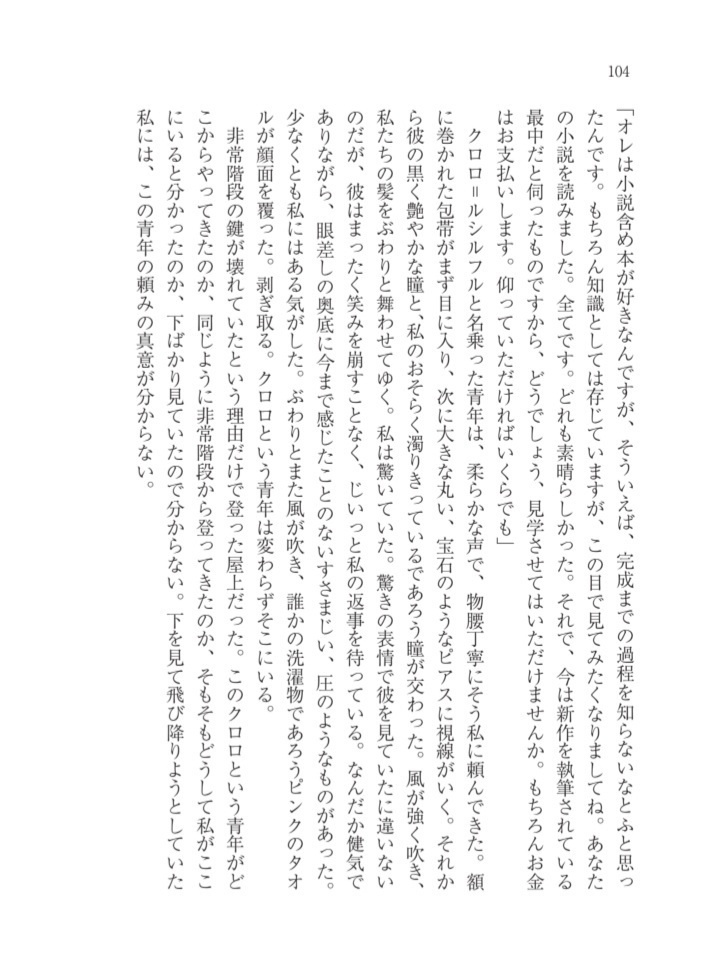 104
「オレは小説含め本が好きなんですが、そういえば、完成までの過程を知らないなとふと思っ
たんです。もちろん知識としては存じていますが、この目で見てみたくなりましてね。あなた
の小説を読みました。全てです。どれも素晴らしかった。それで、今は新作を執筆されている
最中だと伺ったものですから、どうでしょう、見学させてはいただけませんか。もちろんお金
はお支払いします。仰っていただければいくらでも」
クロロ＝ルシルフルと名乗った青年は、柔らかな声で、物腰丁寧にそう私に頼んできた。額
に巻かれた包帯がまず目に入り、次に大きな丸い、宝石のようなピアスに視線がいく。それか
ら彼の黒く艶やかな瞳と、私のおそらく濁りきっているであろう瞳が交わった。風が強く吹き、
私たちの髪をぶわりと舞わせてゆく。私は驚いていた。驚きの表情で彼を見ていたに違いない
のだが、彼はまったく笑みを崩すことなく、じいっと私の返事を待っている。なんだか健気で
ありながら、眼差しの奥底に今まで感じたことのないすさまじい、圧のようなものがあった。
少なくとも私にはある気がした。ぶわりとまた風が吹き、誰かの洗濯物であろうピンクのタオ
ルが顔面を覆った。剥ぎ取る。クロロという青年は変わらずそこにいる。
非常階段の鍵が壊れていたという理由だけで登った屋上だった。このクロロという青年がど
こからやってきたのか、同じように非常階段から登ってきたのか、そもそもどうして私がここ
にいると分かったのか、下ばかり見ていたので分からない。下を見て飛び降りようとしていた
私には、この青年の頼みの真意が分からない。